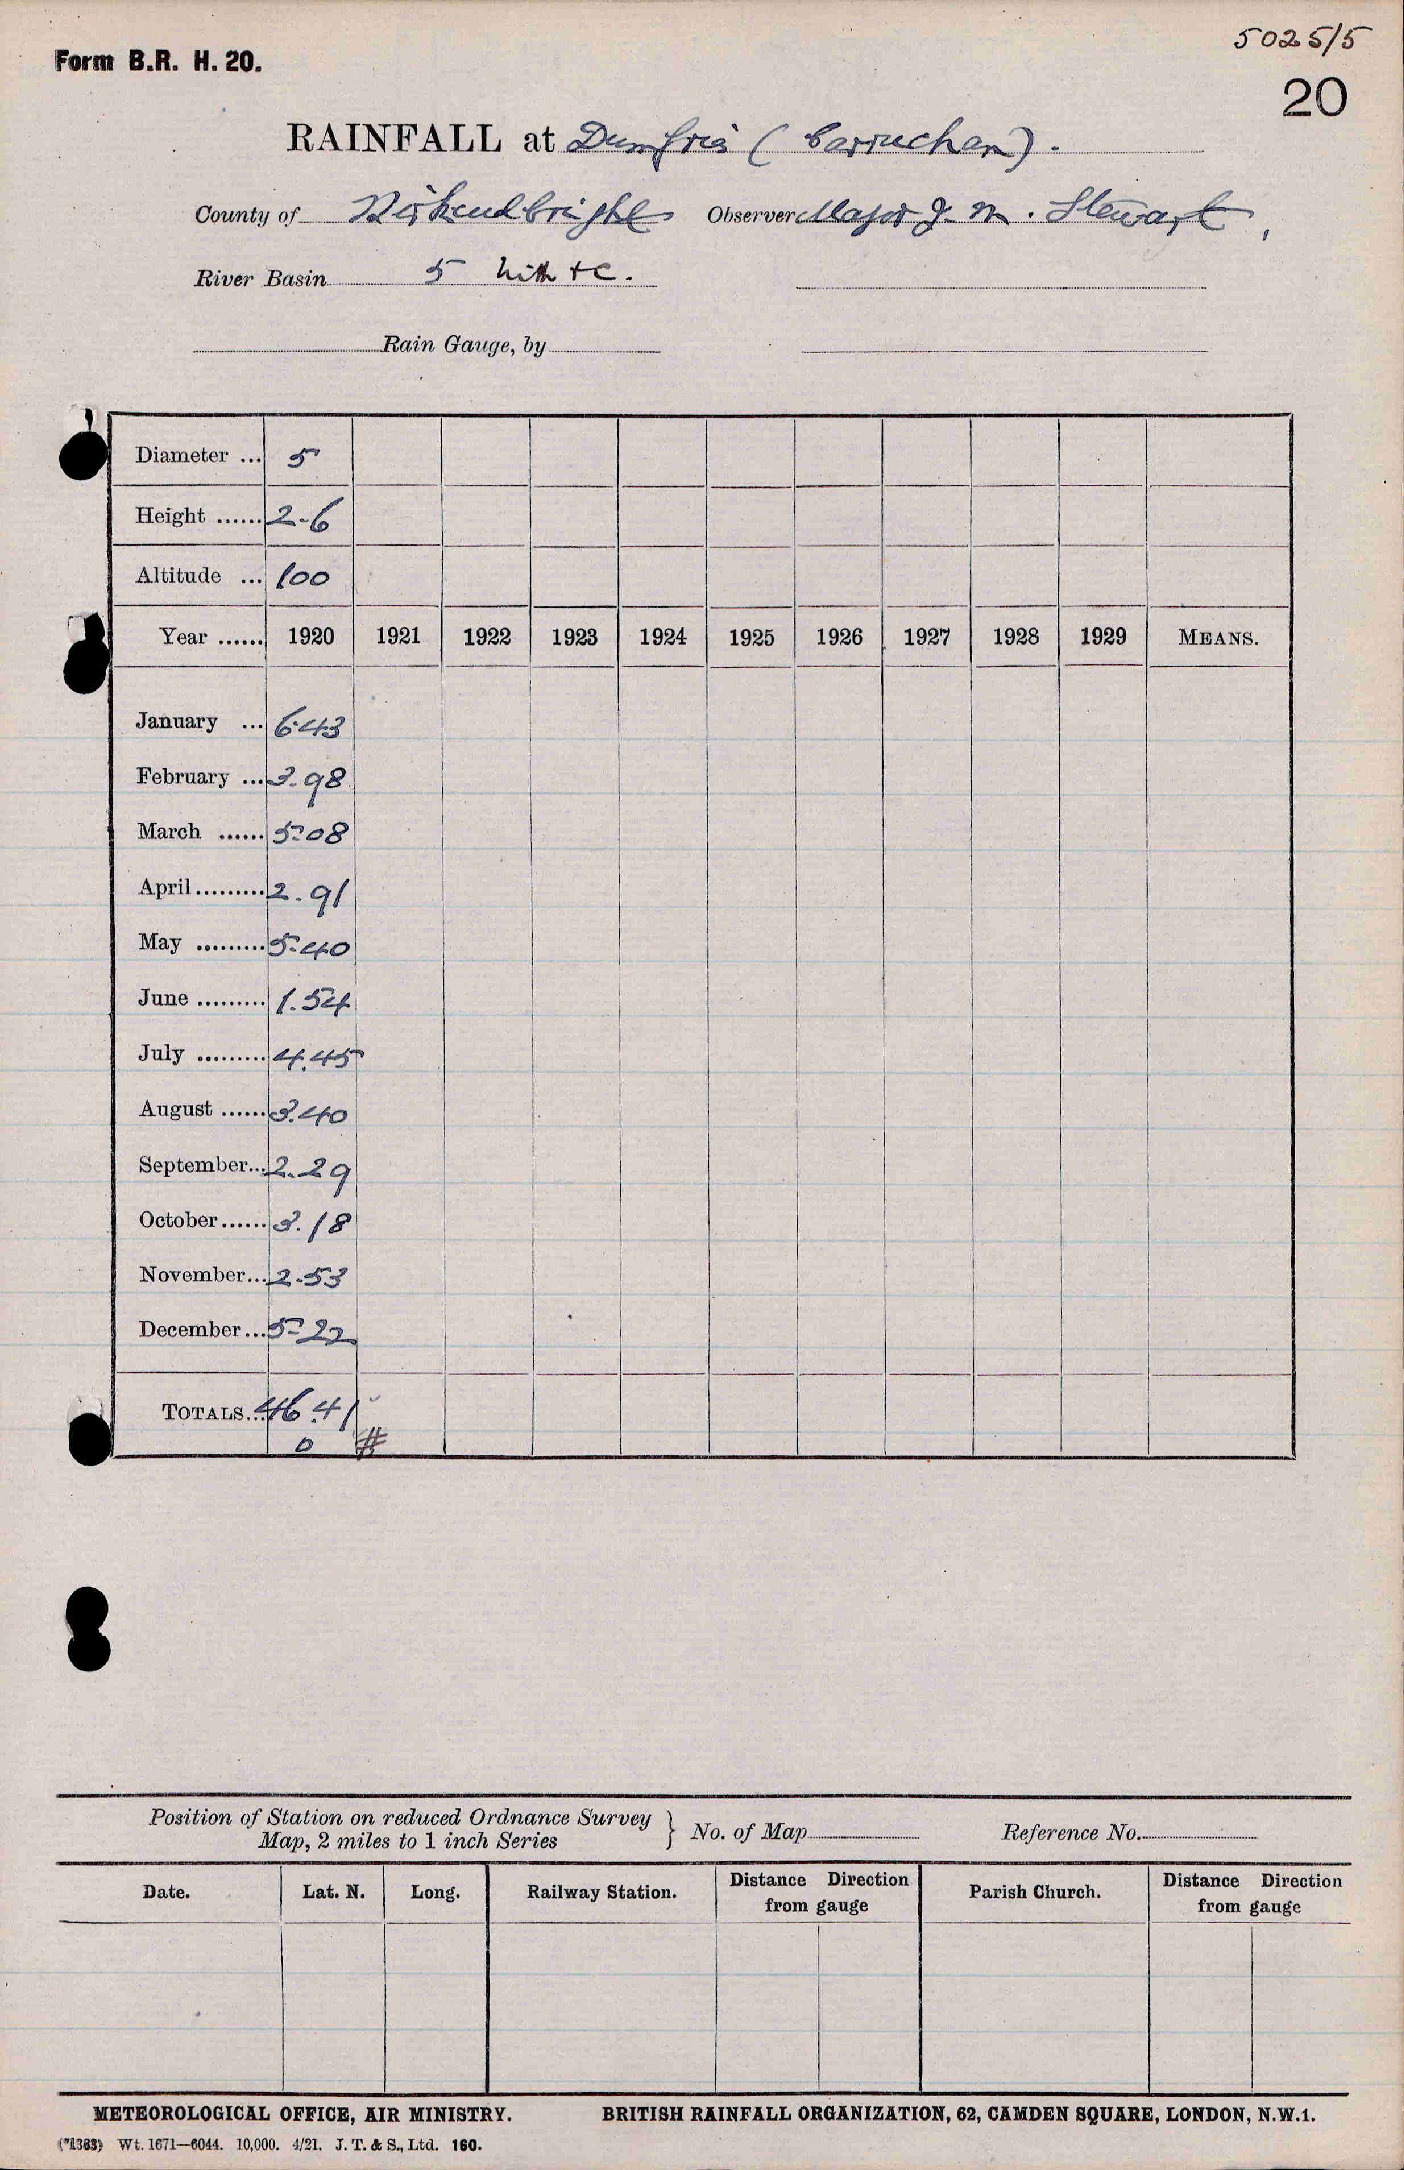 5025/5
Form B.R. H. 20.
20
RAINFALL at Dumfries (Carruchan).
County of Kirkcudbright Observer Major J. M. Stewart,
River Basin 5 Nith + C.
Rain Gauge, by
Diameter ... 5
Height ...... 2-6
Altitude ... 100
Year ...... 1920 1921 1922 1923 1924 1925 1926 1927 1928 1929 MEANS.
January ... 6.43
February ... 3.98
March ...... 5.08
April ......... 2.91
May ......... 5.40
June ......... 1.54
July ......... 4.45
August ...... 3.40
September... 2.29
October...... 3.18
November... 2.53
December... 5.22
TOTALS... 46.41
0 #
Position of Station on reduced Ordnance Survey
Map, 2 miles to 1 inch Series } No. of Map Reference No.
Date. Lat. N. Long. Railway Station. Distance Direction from gauge Parish Church. Distance Direction from gauge
METEOROLOGICAL OFFICE, AIR MINISTRY. BRITISH RAINFALL ORGANIZATION, 62, CAMDEN SQUARE, LONDON, N.W.1.
(*1383) Wt. 1671—6044. 10,000. 4/21. J. T. & S., Ltd. 160.